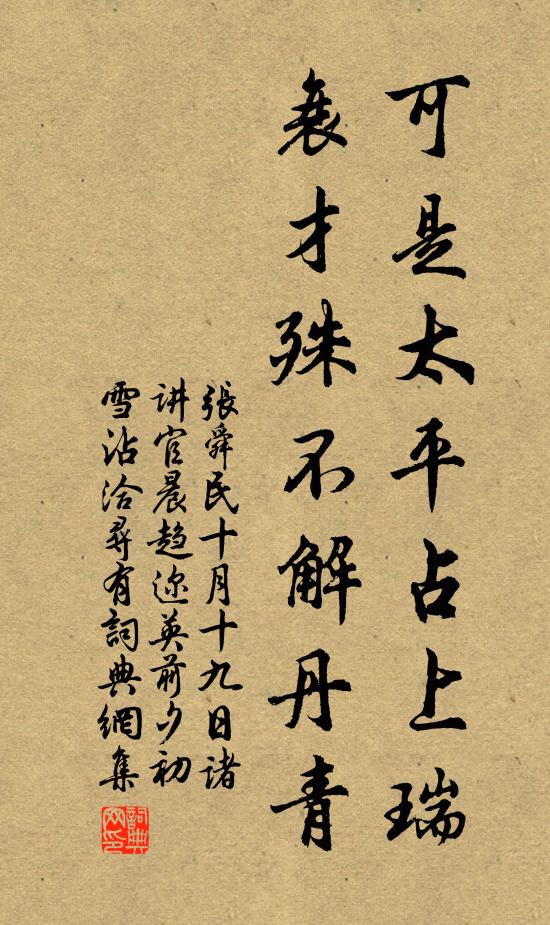 可是太平占上瑞
衰才殊不解丹青
張舜民十月十九日諸
讲官晨趋迩英前夕初
雪沾洽尋有詞典網集
詞典網印